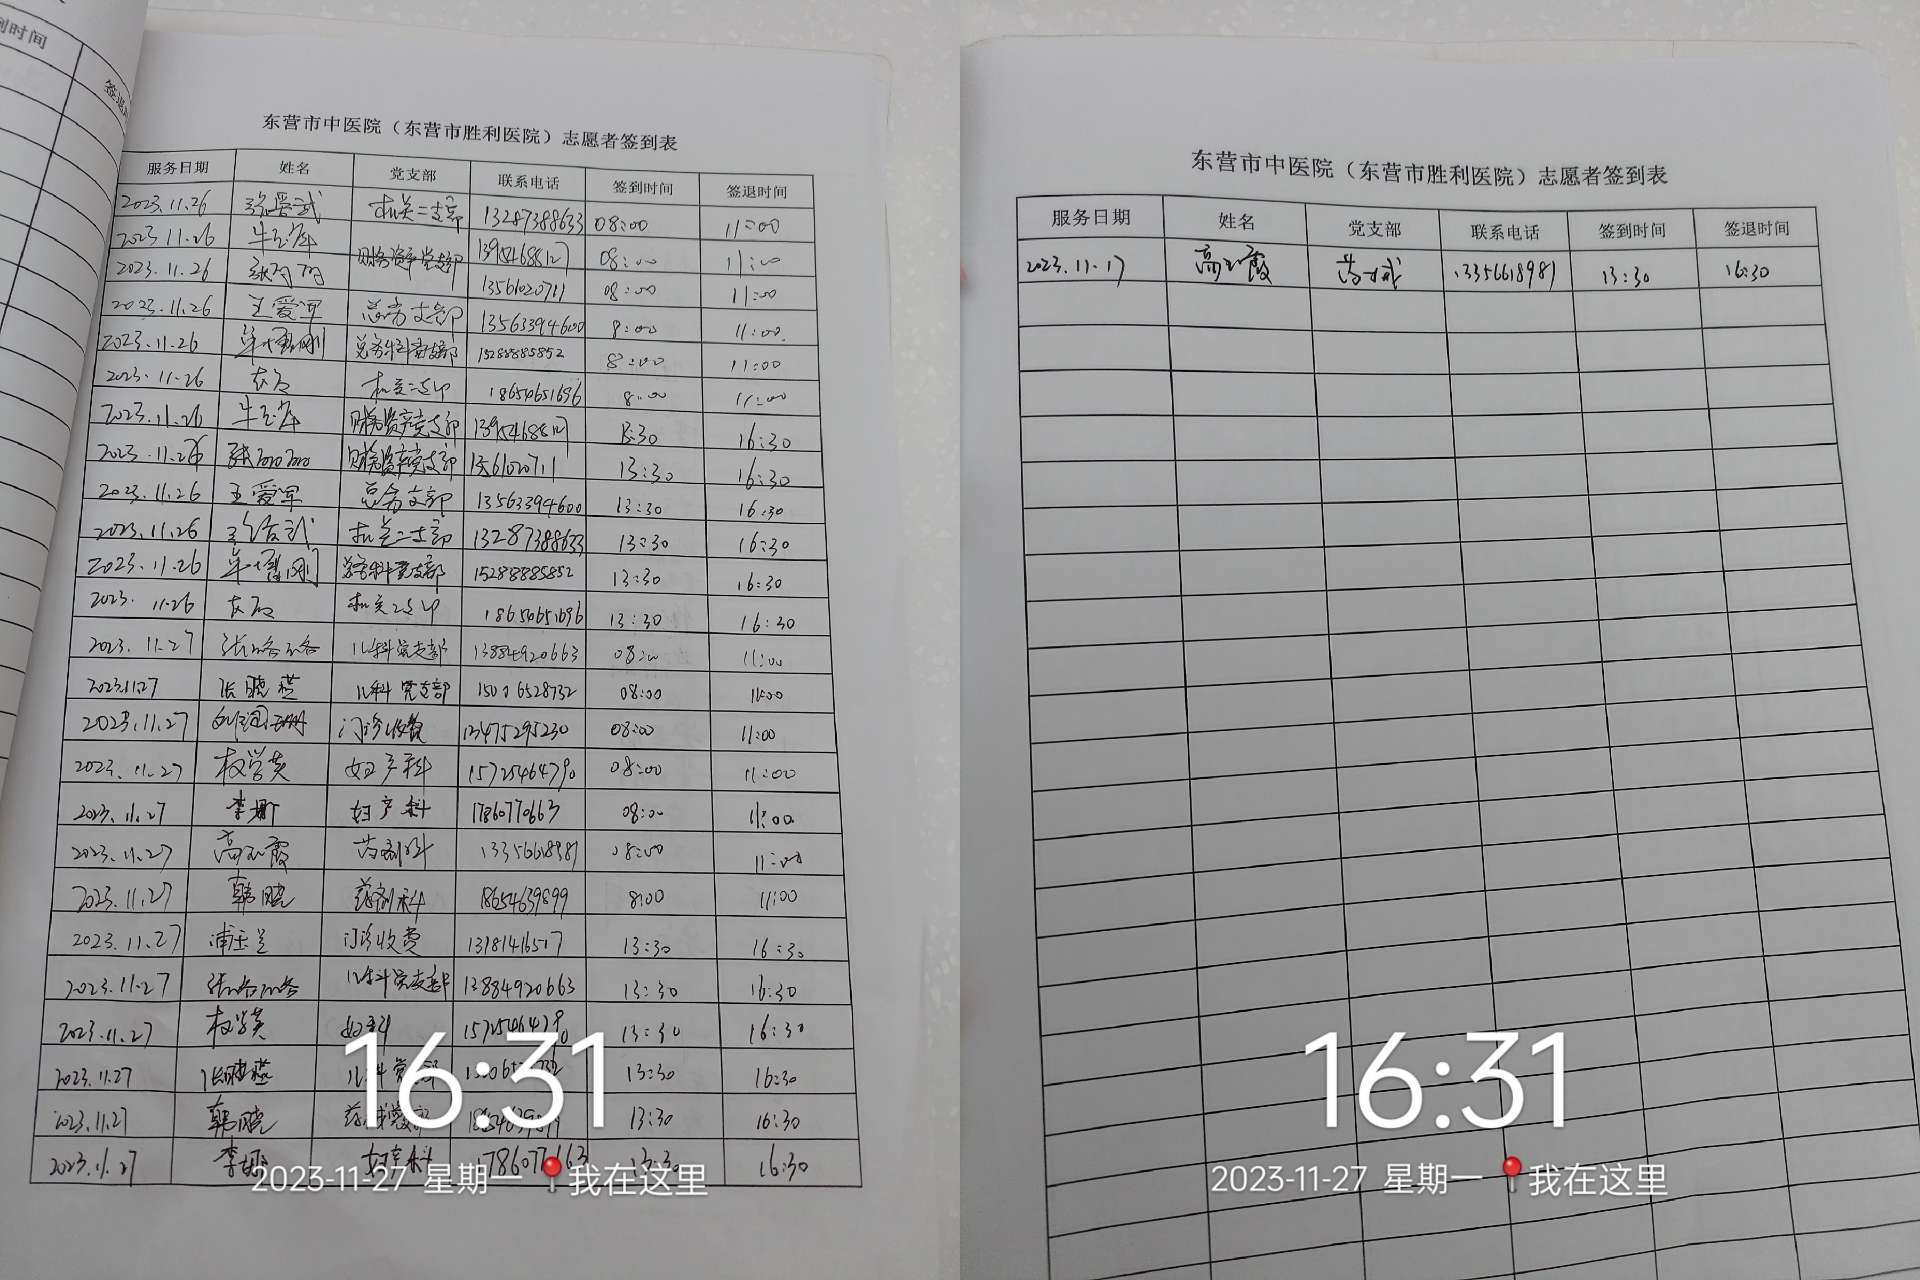 到时间
签退
东营市中医院（东营市胜利医院）志愿者签到表
服务日期 姓名 党支部 联系电话 签到时间 签退时间
2023.11.26 机关二支部 13287388633 08:00 11:00
2023.11.26 财务资产党支部 13954688127 08:00 11:00
2023.11.26 13561020711 08:00 11:00
2023.11.26 王爱军 总务支部 13563394600 8:00 11:00
2023.11.26 总务科党支部 15288885852 8:00 11:00
2023.11.26 18650651696 8:00 11:00
2023.11.26 财务资产党支部 13954688127 13:30 16:30
2023.11.26 财务资产党支部 13561020711 13:30 16:30
2023.11.26 王爱军 总务支部 13563394600 13:30 16:30
2023.11.26 机关二支部 13287388633 13:30 16:30
2023.11.26 总务科党支部 15288885852 13:30 16:30
2023.11.26 18650651696 13:30 16:30
2023.11.27 张洛洛 儿科党支部 13884920663 08:00 11:00
2023.11.27 张晓燕 儿科党支部 15006528732 08:00 11:00
2023.11.27 门诊收费 13475295230 08:00 11:00
2023.11.27 权学英 妇产科 15725464790 08:00 11:00
2023.11.27 李娜 妇产科 17860770663 08:00 11:00
2023.11.27 高玉霞 药剂科 13356618981 08:00 11:00
2023.11.27 韩晓 药剂科 18654639899 8:00 11:00
2023.11.27 门诊收费 13181416517 13:30 16:30
2023.11.27 儿科党支部 13884920663 13:30 16:30
2023.11.27 权学英 13:30 16:30
2023.11.27 张晓燕 13:30 16:30
2023.11.27 韩晓 13:30 16:30
2023.11.27 李娜 妇产科 13:30 16:30
16:31
2023-11-27 星期一 我在这里
东营市中医院（东营市胜利医院）志愿者签到表
服务日期 姓名 党支部 联系电话 签到时间 签退时间
2023.11.17 高玉霞 13356618981 13:30 16:30
16:31
2023-11-27 星期一 我在这里